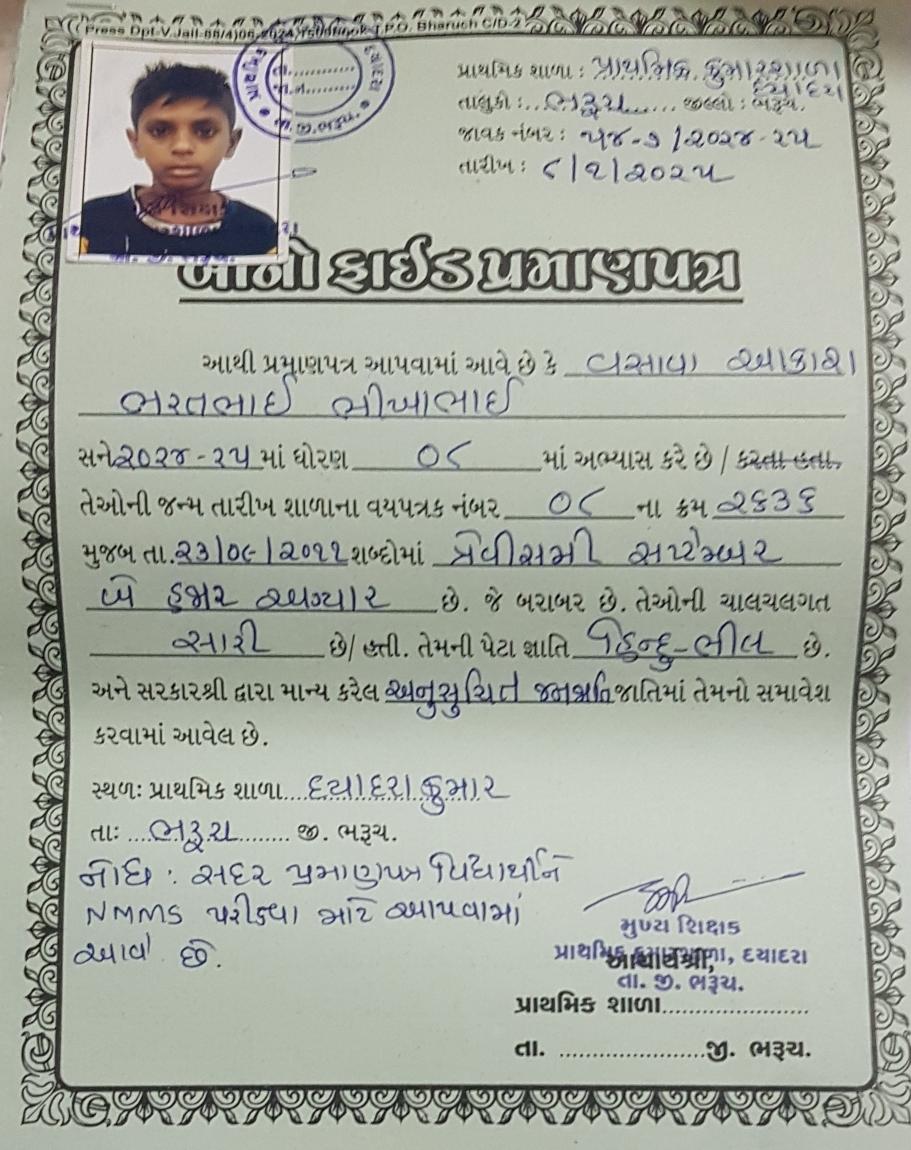 (Press Dpt.V.Jail-
P.O. Bharuch C/D-2
પ્રાથમિક શાળા : પ્રાથમિક કુમારશાળા
દયાદરા
તાલુકો : ભરૂચ જીલ્લો : ભરૂચ.
જાવક નંબર : ૫૪-૭/૨૦૨૪-૨૫
તારીખ : ૮/૧/૨૦૨૫
બોનો ફાઈડ પ્રમાણપત્ર
આથી પ્રમાણપત્ર આપવામાં આવે છે કે વસાવા આકાશ
ભરતભાઈ ભીખાભાઈ
સને ૨૦૨૪-૨૫ માં ધોરણ ૦૮ માં અભ્યાસ કરે છે / કરતા હતા.
તેઓની જન્મ તારીખ શાળાના વયપત્રક નંબર ૦૮ ના ક્રમ ૨૬૩૬
મુજબ તા. ૨૩/૦૯/૨૦૧૧ શબ્દોમાં ત્રેવીસમી સપ્ટેમ્બર
બે હજાર અગ્યાર છે. જે બરાબર છે. તેઓની ચાલચલગત
સારી છે/ હતી. તેમની પેટા જ્ઞાતિ હિન્દુ-ભીલ છે.
અને સરકારશ્રી દ્વારા માન્ય કરેલ અનુસુચિત જનજાતિ જાતિમાં તેમનો સમાવેશ
કરવામાં આવેલ છે.
સ્થળઃ પ્રાથમિક શાળા દયાદરા કુમાર
તાઃ ભરૂચ જી. ભરૂચ.
નોંધ : સદર પ્રમાણપત્ર વિદ્યાર્થીને
NMMS પરીક્ષા માટે આપવામાં
આવે છે.
મુખ્ય શિક્ષક
પ્રાથમિક કુમારશાળા, દયાદરા
આચાર્યશ્રી,
તા. જી. ભરૂચ.
પ્રાથમિક શાળા
તા. જી. ભરૂચ.